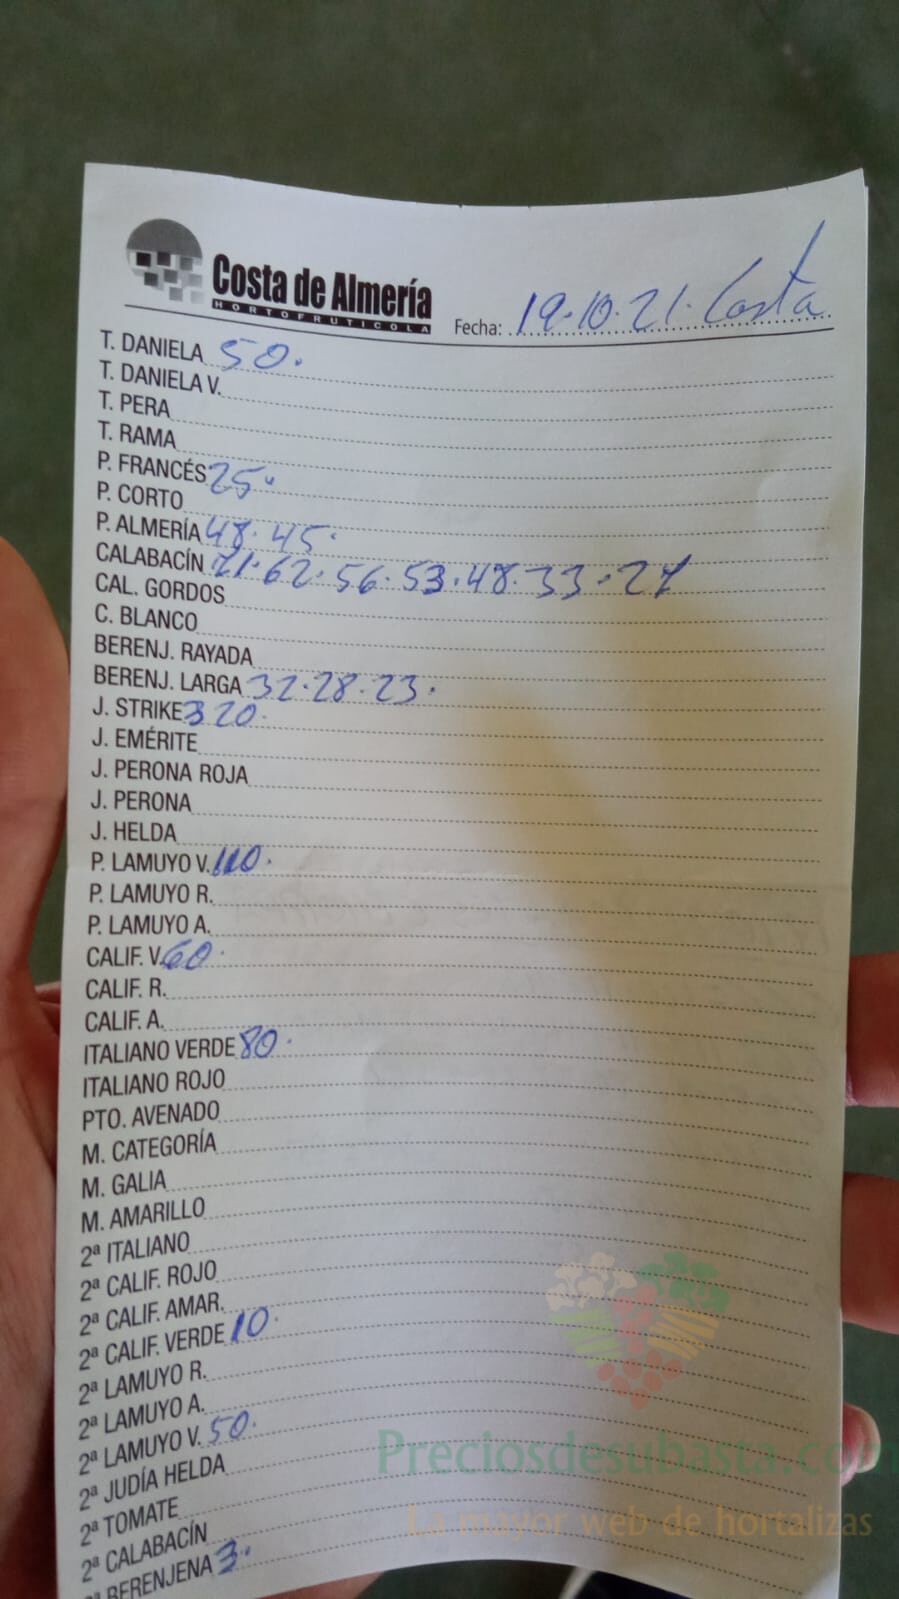 Costa de Almería
HORTOFRUTICOLA
Fecha: 19.10.21. Costa
T. DANIELA 50.
T. DANIELA V.
T. PERA
T. RAMA
P. FRANCÉS 25.
P. CORTO
P. ALMERÍA 48. 45.
CALABACÍN 71. 62. 56. 53. 48. 33. 27
CAL. GORDOS
C. BLANCO
BERENJ. RAYADA
BERENJ. LARGA 32. 28. 23.
J. STRIKE 320.
J. EMÉRITE
J. PERONA ROJA
J. PERONA
J. HELDA
P. LAMUYO V. 110.
P. LAMUYO R.
P. LAMUYO A.
CALIF. V. 60.
CALIF. R.
CALIF. A.
ITALIANO VERDE 80.
ITALIANO ROJO
PTO. AVENADO
M. CATEGORÍA
M. GALIA
M. AMARILLO
2ª ITALIANO
2ª CALIF. ROJO
2ª CALIF. AMAR.
2ª CALIF. VERDE 10.
2ª LAMUYO R.
2ª LAMUYO A.
2ª LAMUYO V. 50.
2ª JUDÍA HELDA
2ª TOMATE
2ª CALABACÍN
2ª BERENJENA 3.
Preciosdesubasta.com
La mayor web de hortalizas